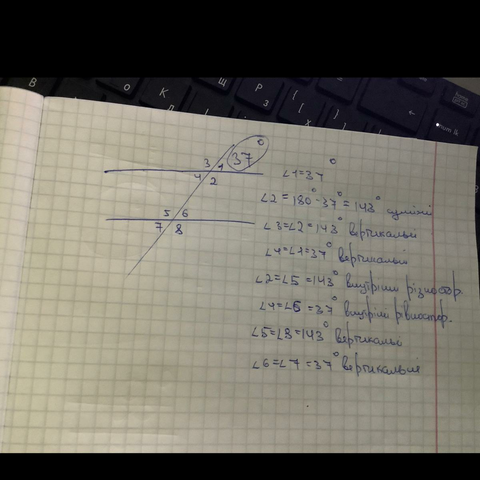 3 1 37°
4 2
5 6
7 8
∠1=37°
∠2=180°-37°=143° суміжні
∠3=∠2=143° вертикальні
∠4=∠1=37° вертикальні
∠2=∠5=143° внутрішні різностор.
∠4=∠6=37° внутрішні різностор.
∠5=∠8=143° вертикальні
∠6=∠7=37° вертикальні